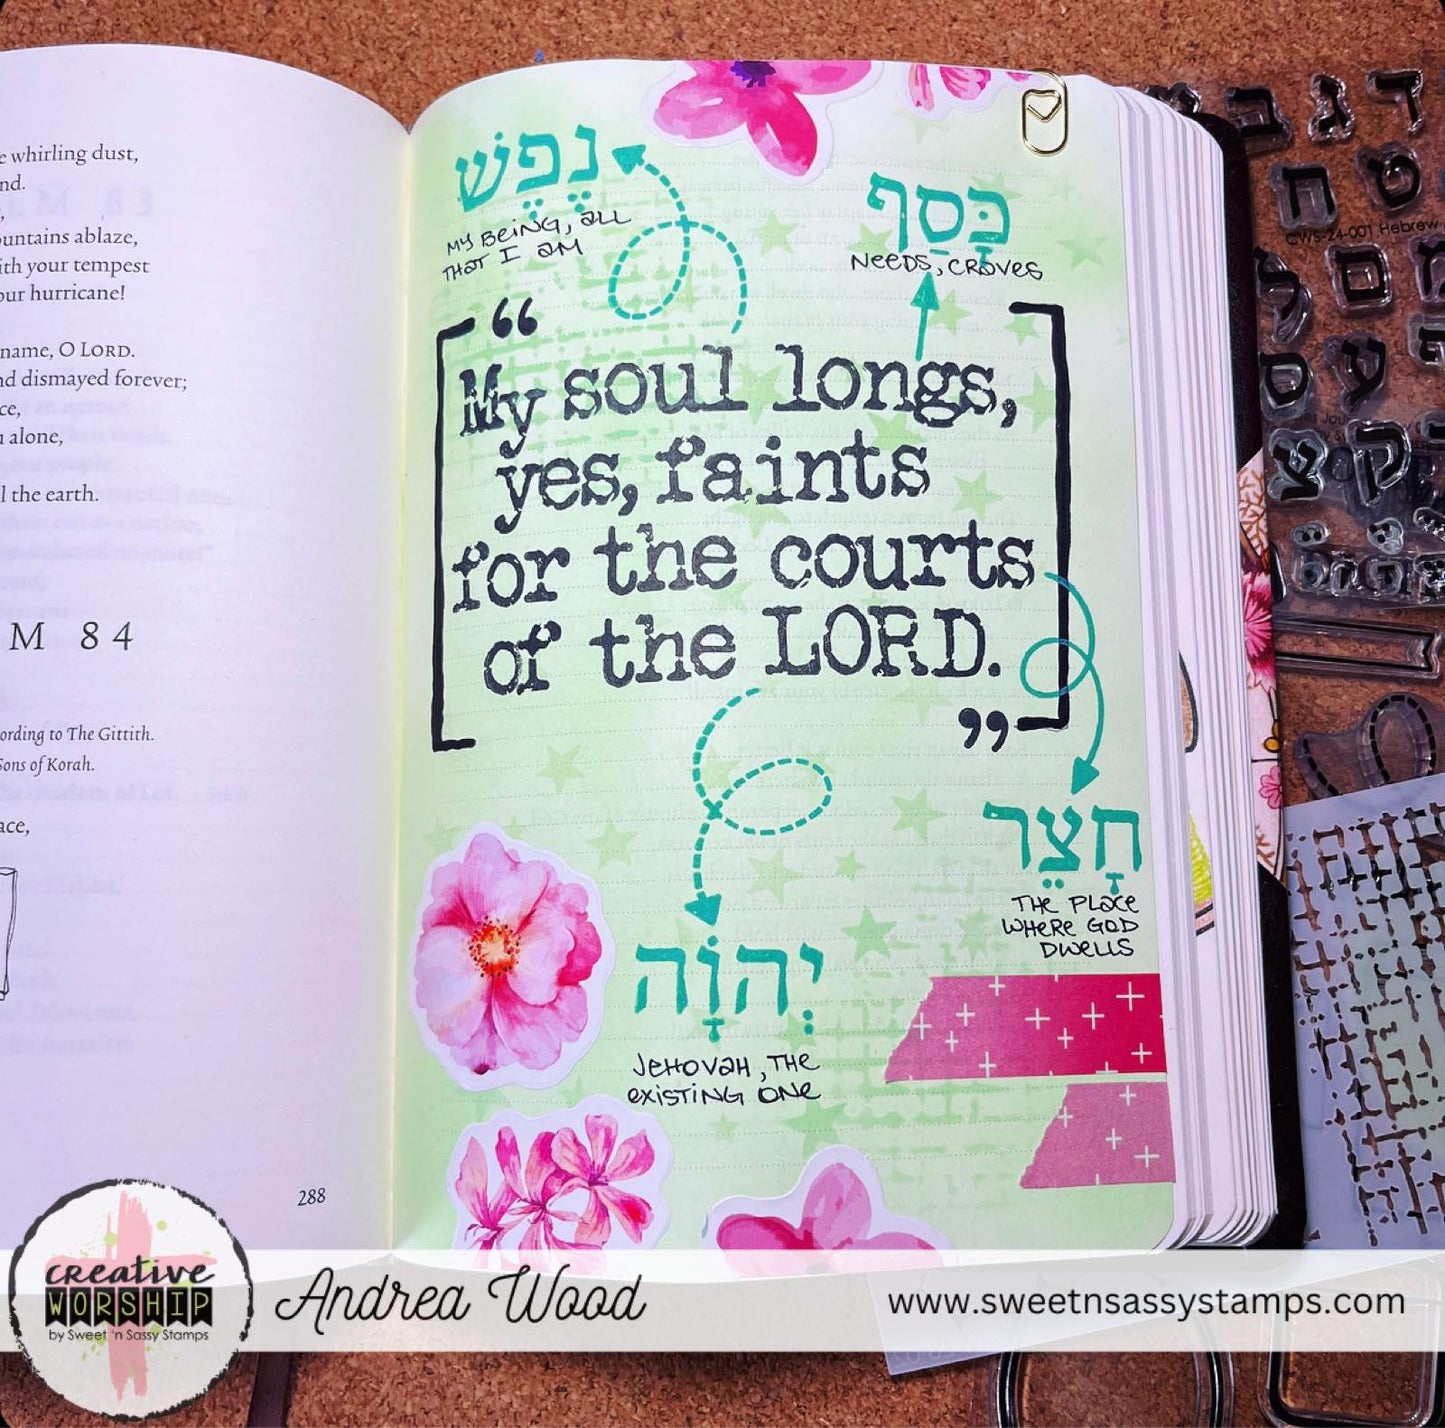 e whirling dust,
nd.
untains ablaze,
ith your tempest
our hurricane!
name, O LORD.
nd dismayed forever;
ce,
alone,
l the earth.
M 84
ording to The Gittith.
Sons of Korah.
ace,
288
נֶפֶשׁ
MY BEING, ALL
THAT I AM
כָּסַף
NEEDS, CRAVES
“My soul longs,
yes, faints
for the courts
of the LORD.”
חָצֵר
THE PLACE
WHERE GOD
DWELLS
יְהוָֹה
JEHOVAH, THE
EXISTING ONE
ב ג ד
ח ט
CWS-24-001 Hebrew
ל ם מ
ס ע
צ ק
creative
WORSHIP
by Sweet 'n Sassy Stamps
Andrea Wood
www.sweetnsassystamps.com